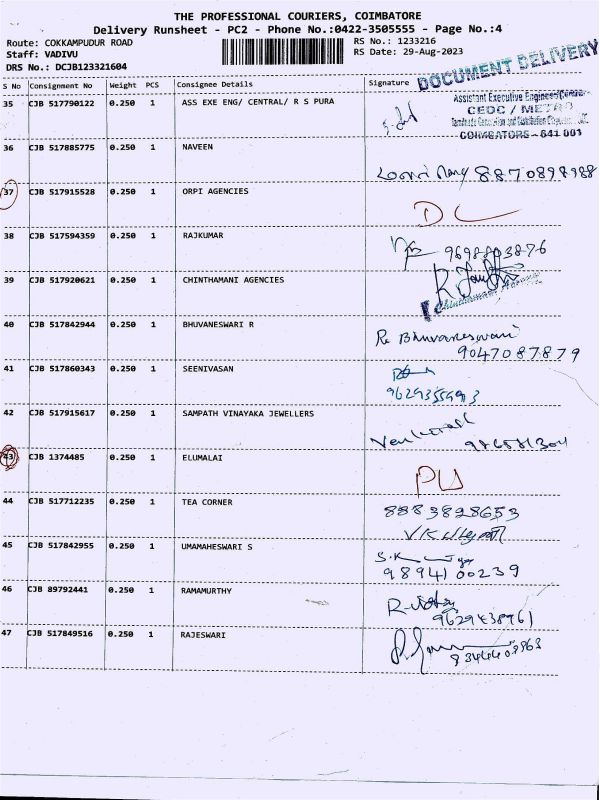 THE PROFESSIONAL COURIERS, COIMBATORE
Delivery Runsheet - PC2 - Phone No.:0422-3505555 - Page No.:4
Route: COKKAMPUDUR ROAD
RS No.: 1233216
Staff: VADIVU
RS Date: 29-Aug-2023
DRS No.: DCJB123321604
DOCUMENT DELIVERY
S No Consignment No Weight PCS Consignee Details Signature
35 CJB 517790122 0.250 1 ASS EXE ENG/ CENTRAL/ R S PURA
Assistant Executive Engineer/Central
CEDC / METRO
COIMBATORE - 641 001
36 CJB 517885775 0.250 1 NAVEEN
8870898988
37 CJB 517915528 0.250 1 ORPI AGENCIES
DC
38 CJB 517594359 0.250 1 RAJKUMAR
9698803876
39 CJB 517920621 0.250 1 CHINTHAMANI AGENCIES
40 CJB 517842944 0.250 1 BHUVANESWARI R
R. Bhuvaneswari
9047087879
41 CJB 517860343 0.250 1 SEENIVASAN
42 CJB 517915617 0.250 1 SAMPATH VINAYAKA JEWELLERS
43 CJB 1374485 0.250 1 ELUMALAI
44 CJB 517712235 0.250 1 TEA CORNER
8883828653
45 CJB 517842955 0.250 1 UMAMAHESWARI S
9894100239
46 CJB 89792441 0.250 1 RAMAMURTHY
47 CJB 517849516 0.250 1 RAJESWARI